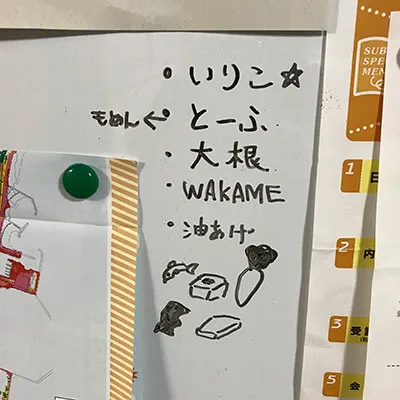 ・いりこ☆
もめん←・とーふ
・大根
・WAKAME
・油あげ
SUB
SPE
MEN
1 日
2 内
3 受
5 会